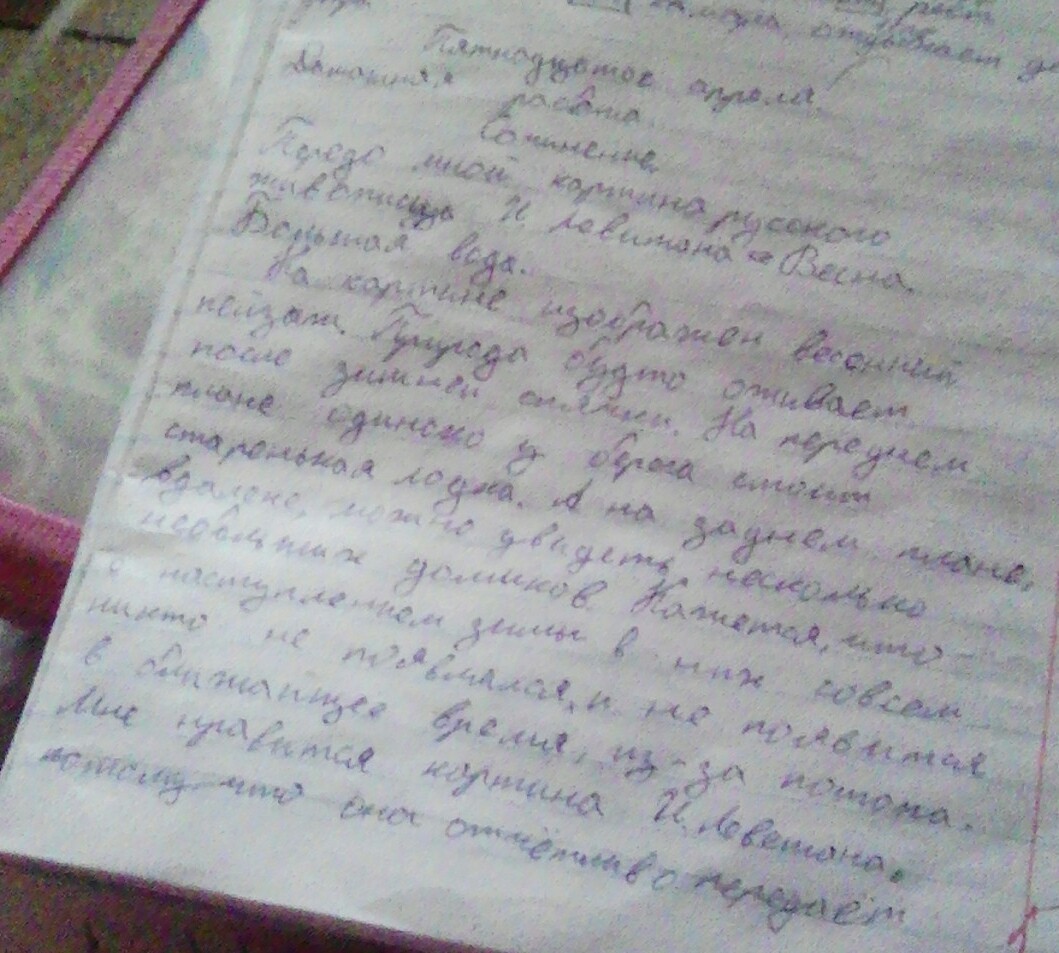 работ
отдыхает
Пятнадцатое апреля.
Домашняя работа.
Сочинение.
Передо мной картина русского
живописца И. Левитана "Весна.
Большая вода.
На картине изображен весенний
пейзаж. Природа будто оживает
после зимней спячки. На переднем
плане одиноко у берега стоит
старенькая лодка. А на заднем плане,
вдалеке, можно увидеть несколько
небольших домиков. Кажется, что
с наступлением зимы в них совсем
никто не появлялся, и не появится
в ближайшее время, из-за потопа.
Мне нравится картина И. Леветана,
потому что она отчётливо передаёт